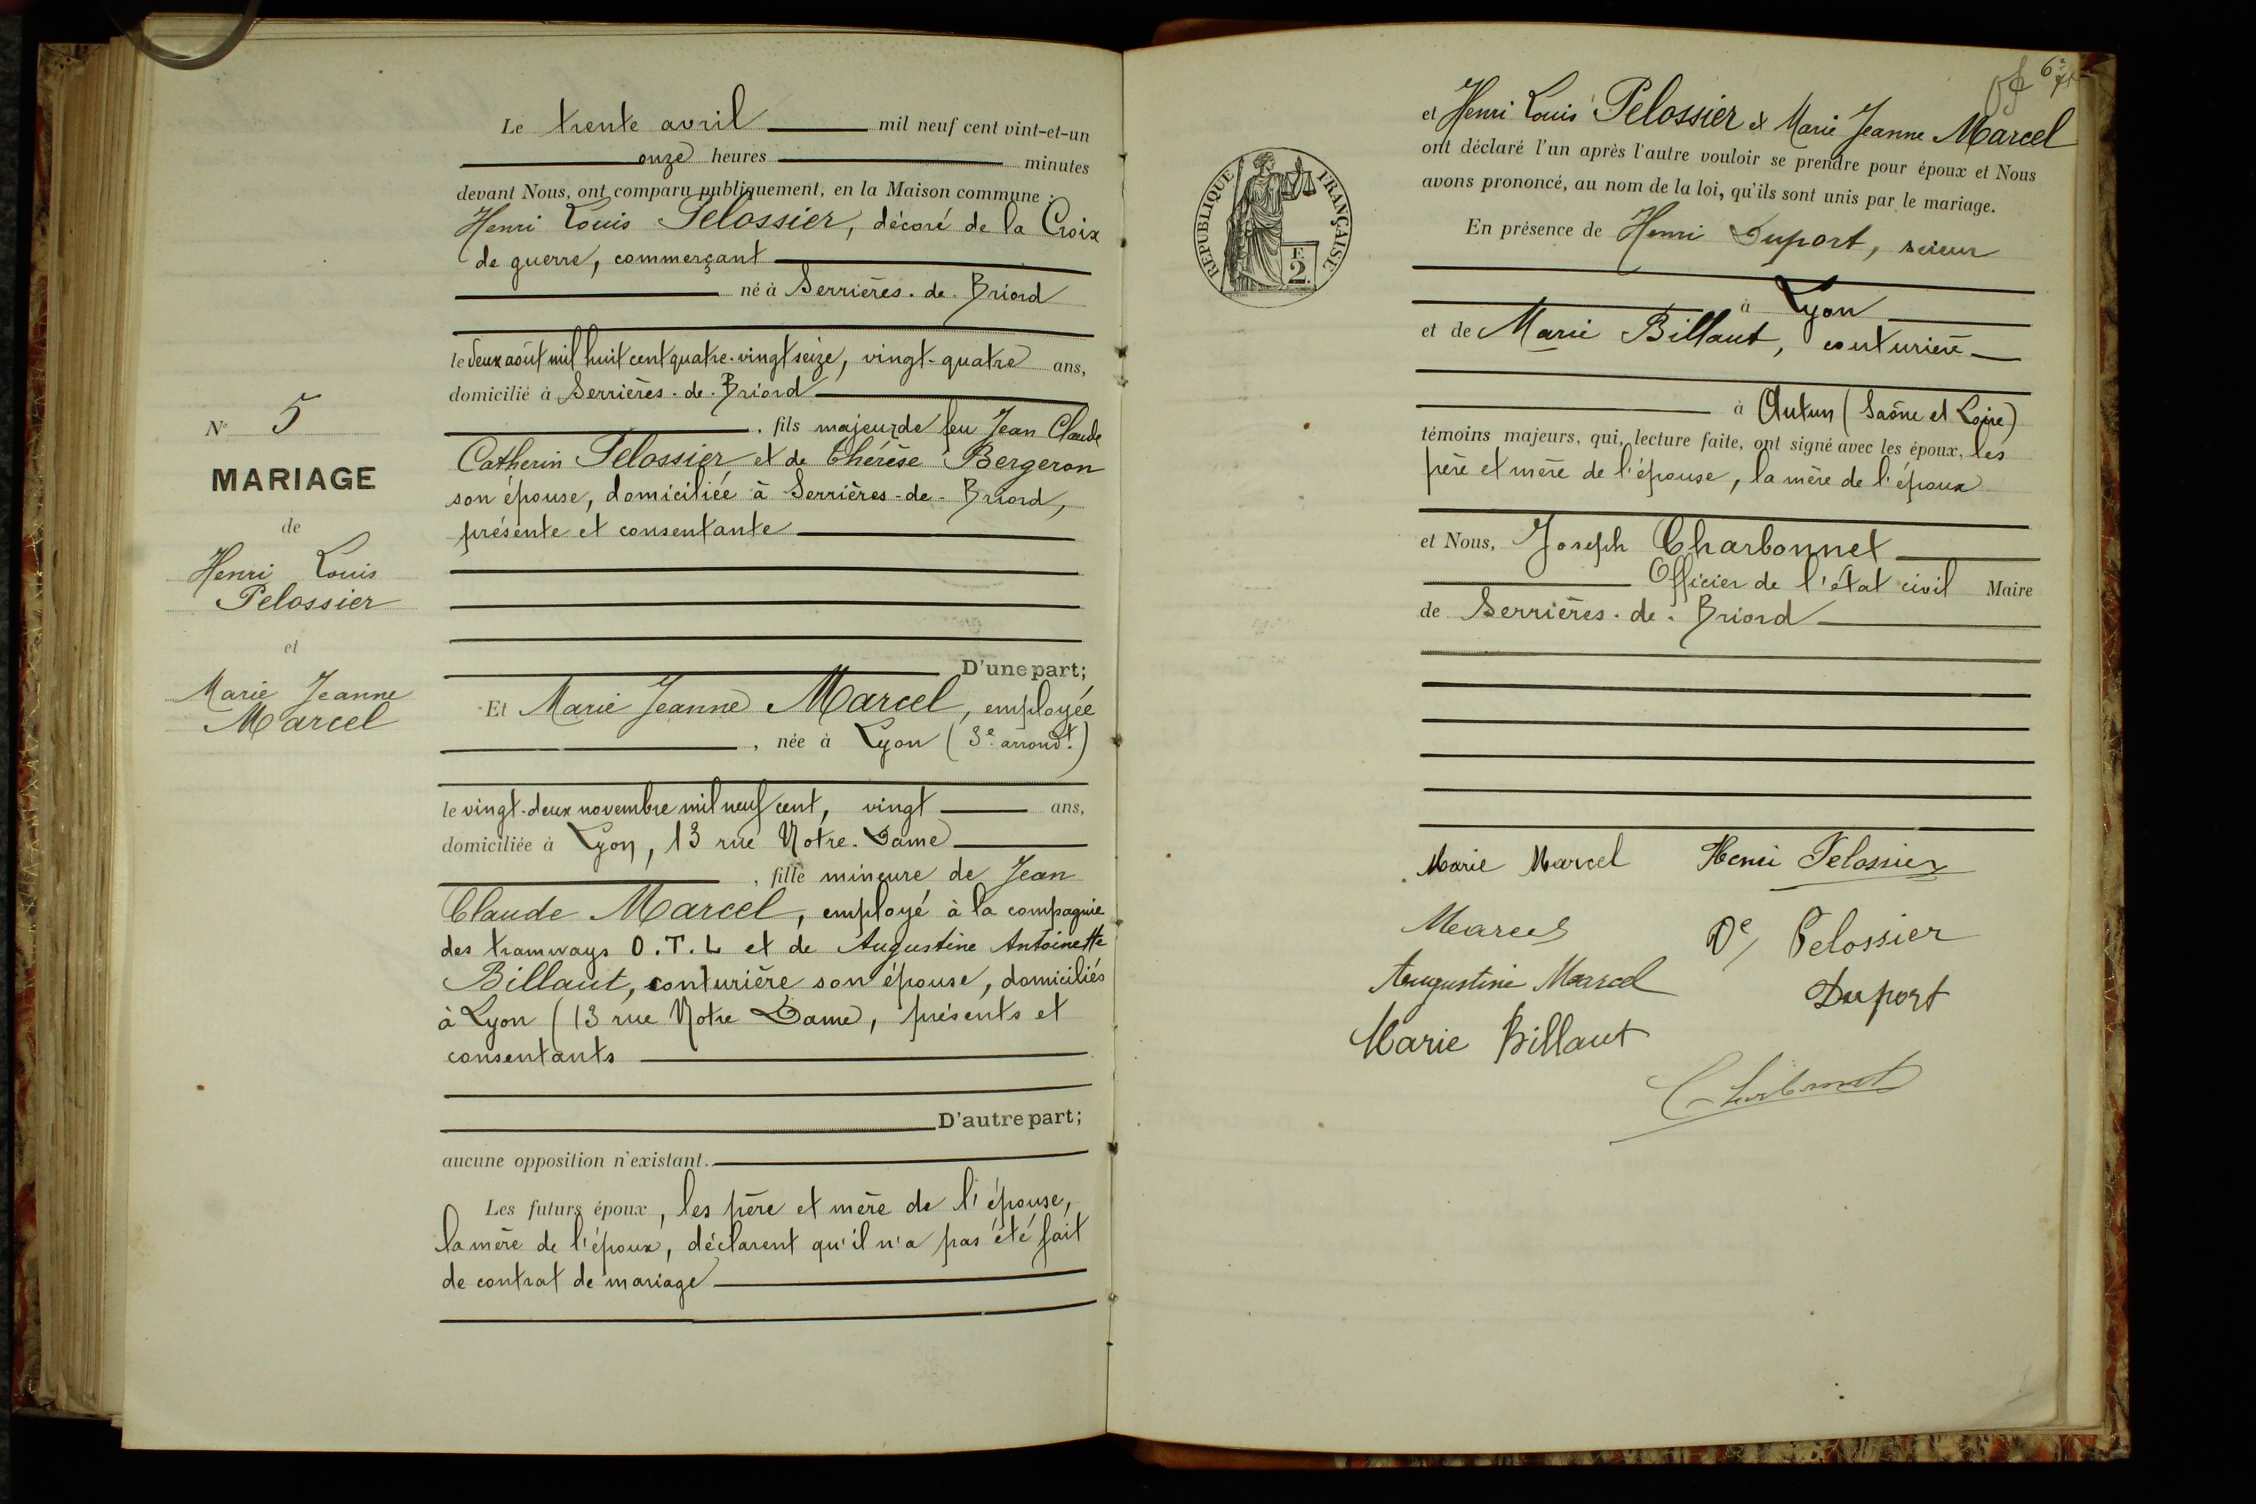 Le trente avril mil neuf cent vint-et-un
onze heures minutes
devant Nous, ont comparu publiquement, en la Maison commune :
Henri Louis Pelossier, décoré de la Croix
de guerre, commerçant
né à Serrières-de-Briord
le deux août mil huit cent quatre-vingt seize, vingt-quatre ans,
domicilié à Serrières-de-Briord
, fils majeur de feu Jean Claude
Catherin Pelossier et de Thérèse Bergeron
son épouse, domiciliée à Serrières-de-Briord,
présente et consentante
D'une part;
Et Marie Jeanne Marcel, employée
, née à Lyon (3e arrondt.)
le vingt-deux novembre mil neuf cent, vingt ans,
domiciliée à Lyon, 13 rue Notre-Dame
, fille mineure de Jean
Claude Marcel, employé à la compagnie
des tramways O.T.L et de Augustine Antoinette
Billaut, couturière son épouse, domiciliés
à Lyon (13 rue Notre Dame, présents et
consentants
D'autre part;
aucune opposition n'existant.
Les futurs époux, les père et mère de l'épouse,
la mère de l'époux, déclarent qu'il n'a pas été fait
de contrat de mariage
No 5
MARIAGE
de
Henri Louis
Pelossier
et
Marie Jeanne
Marcel
RÉPUBLIQUE FRANÇAISE
F
2.
et Henri Louis Pelossier et Marie Jeanne Marcel
ont déclaré l'un après l'autre vouloir se prendre pour époux et Nous
avons prononcé, au nom de la loi, qu'ils sont unis par le mariage.
En présence de Henri Duport, scieur
à Lyon
et de Marie Billaut, couturière
à Autun (Saône et Loire)
témoins majeurs, qui, lecture faite, ont signé avec les époux, les
père et mère de l'épouse, la mère de l'époux
et Nous, Joseph Charbonnet
Officier de l'état civil Maire
de Serrières-de-Briord
Marie Marcel Henri Pelossier
Marcel De Pelossier
Augustine Marcel Duport
Marie Billaut
Charbonnet